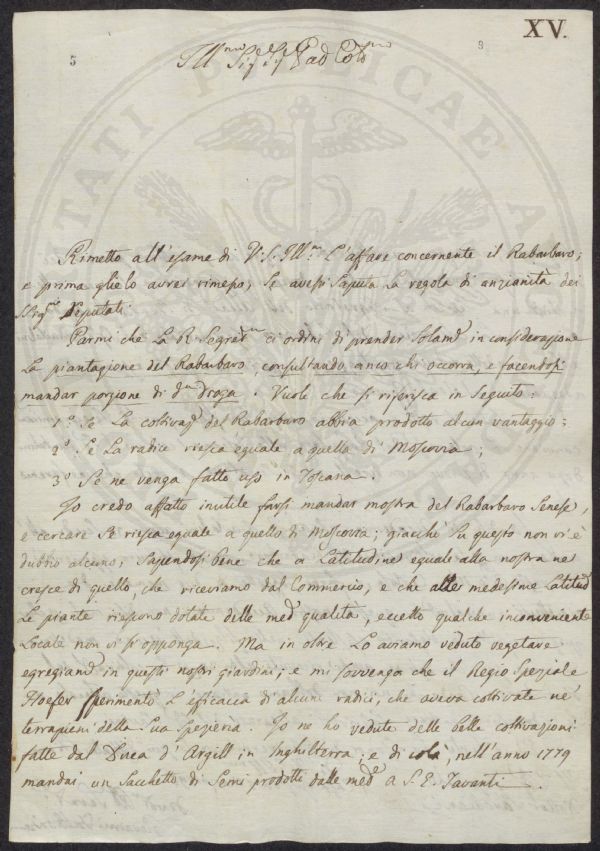 XV.
5
9
Ill.mo Sig.re Sig.re Pad Col.mo
Rimetto all'esame di V.S. Ill.ma L'affare concernente il Rabarbaro;
e prima glielo avrei rimesso, Se avessi Saputa La regola di anzianità dei
SS.ri Deputati.
Parmi che La R. Segret.ria ci ordini di prender Solam.e in considerazione
La piantagione del Rabarbaro consultando anco chi occorra, e facendosi
mandar porzione di d.a Droga. Vuole che si riferisca in Seguito:
1.o Se La coltivaz.e del Rabarbaro abbia prodotto alcun vantaggio;
2.o Se La radice riesca eguale a quella di Moscovia;
3.o Se ne venga fatto uso in Toscana.
Io credo affatto inutile farsi mandar mostra del Rabarbaro Senese,
e cercare Se riesca eguale a quello di Moscovia; giacchè Su questo non vi è
dubbio alcuno, Sapendosi bene che a Latitudine eguale alla nostra ne
cresce di quello, che riceviamo dal Commercio, e che alle medesime Latitud
Le piante riescono dotate delle med.e qualità, eccetto qualche inconveniente
Locale non vi si opponga. Ma in oltre Lo aviamo veduto vegetare
egregiam.e in questi nostri giardini; e mi sovvengo che il Regio Speziale
Hoefer Sperimentò L'efficacia di alcune radici, che aveva coltivate ne'
terrapieni della Sua Spezieria. Io ne ho vedute delle belle coltivazioni
fatte dal Duca d'Argill in Inghilterra; e di colà, nell'anno 1779
mandai un Sacchetto di Semi prodotti dalle med.e a S.E. Tavanti.